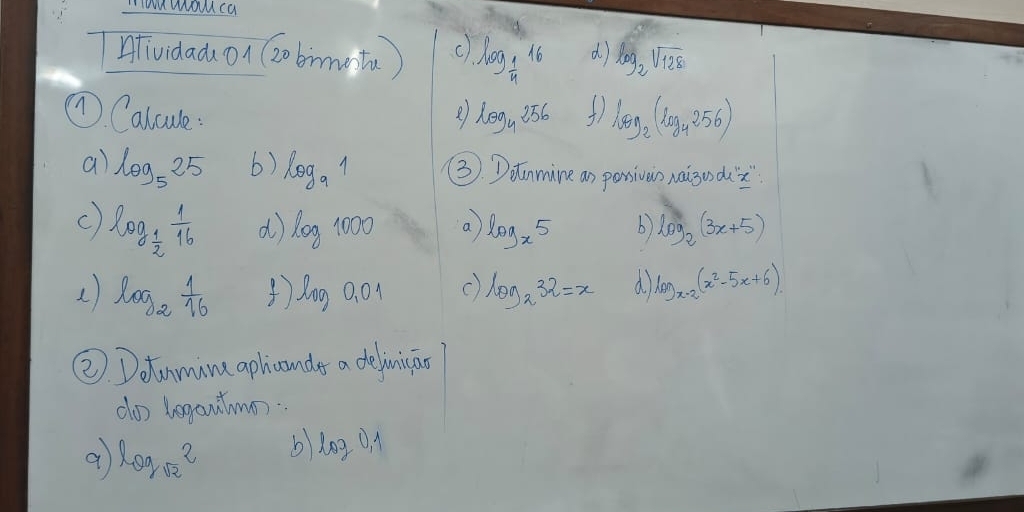 Matemática
Atividade 01 (2o bimestre)
① Calcule:
a) log₅ 25 b) log₉ 1
c) log_{1/2} 1/16 d) log 1000
e) log₂ 1/16 f) log 0,01
② Determine aplicando a definição
dos logaritmos:
a) log_{√2} 2 b) log 0,1
c) log_{1/4} 16 d) log₂ √128
e) log₄ 256 f) log₂ (log₄ 256)
③ Determine as possíveis raízes de "x":
a) logₓ 5 b) log₂ (3x+5)
c) log₂ 32 = x d) log_{x-2} (x²-5x+6)